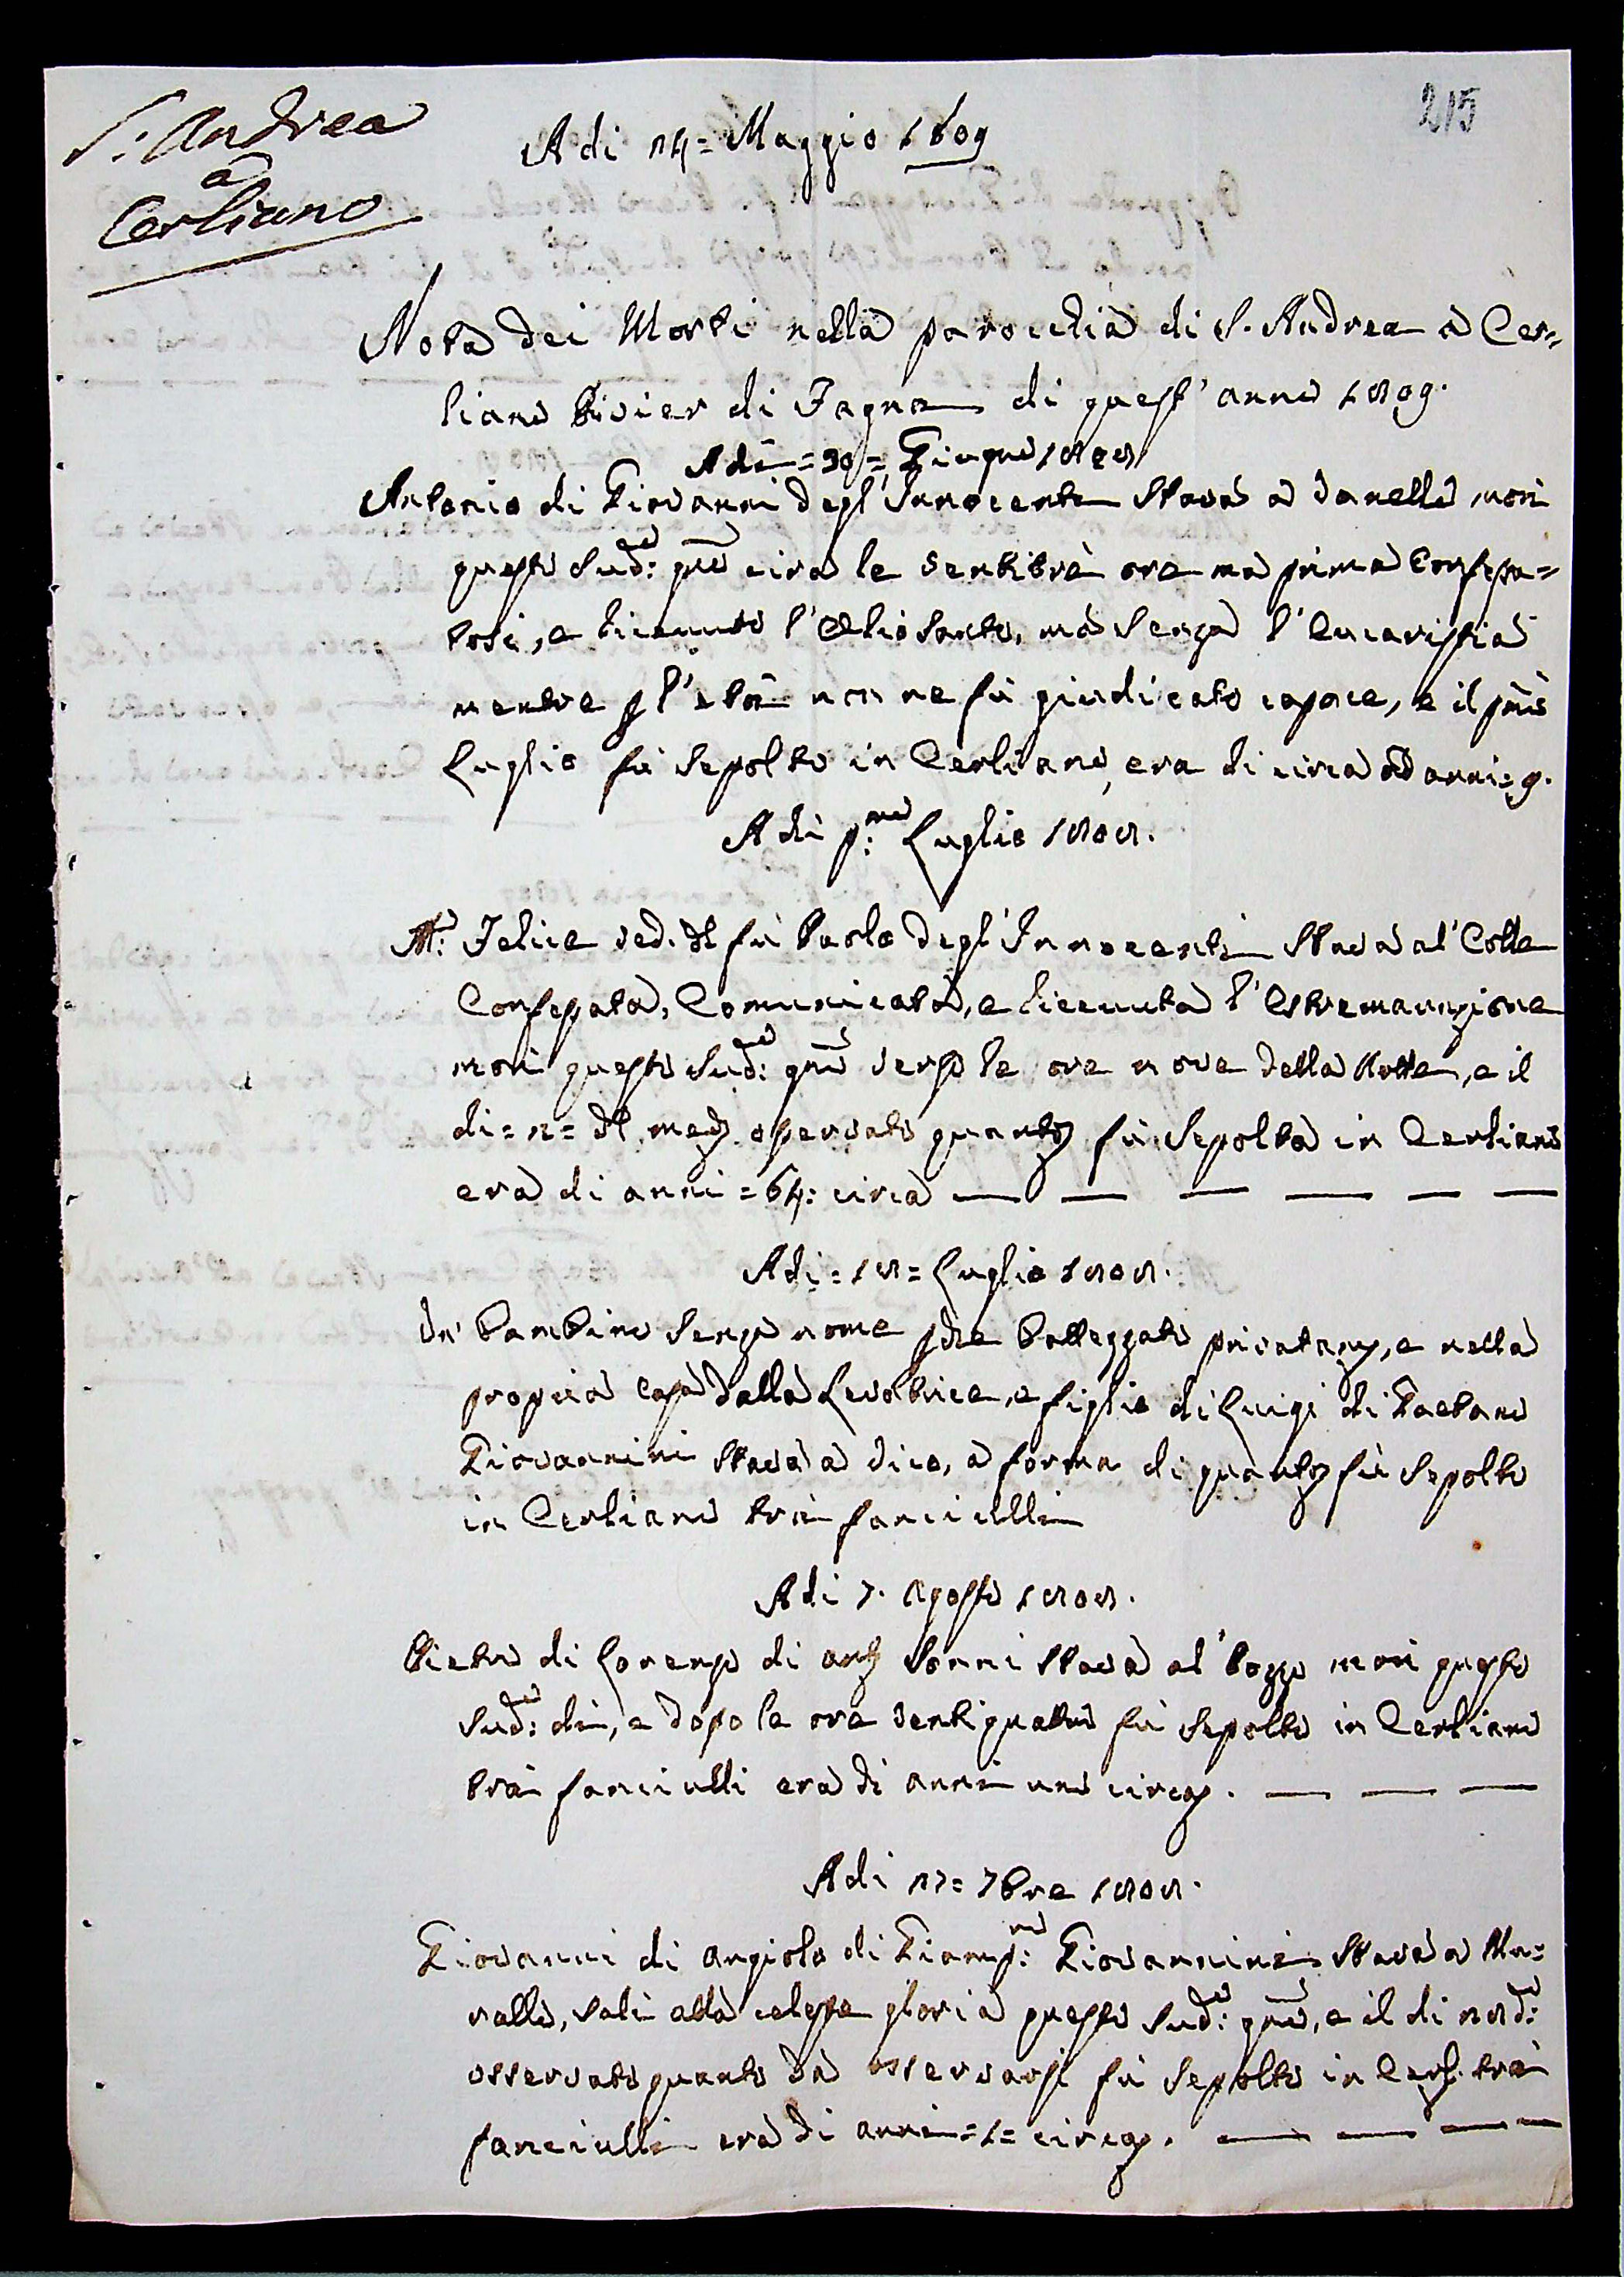 215
S: Andrea
a
Cerliano
A di 24= Maggio 1809
Nota dei Morti nella parocchia di S. Andrea a Cer=
liano Pivier di Fagna di quest' anno 1809.
A di=30= Giugno 1808
Antonio di Giovanni degl' Innocenti stava a morì
questo sud:o gno circa le ventitrè ore ma prima Confessa=
tosi, e riceuuto l'Olio Santo, ma senza l'Eucaristia
mentre p l'età non ne fù giudicato capace, e il pmo
Luglio fù sepolto in Cerliano, era di circa ad anni=9.
A di p:mo Luglio 1808.
Ma: Felice ved. dl fù Paolo degl' Innocenti stava al' Colle
Confessata, Comunicata, e riceuuta l'Estremaunzione
morì questo sud:o gno verso le ore nove della Notte, e il
di=2= dl med. osservato quanto fù sepolta in Cerliano
era di anni=64: circa
A di=18= Luglio 1808.
Un' bambino senza nome pche battezzato privatam, e nella
propria casa dalla Levatrice, e figlio di Luigi di Gaetano
Giovannini stava a Vico, a forma di quanto fù sepolto
in Cerliano trà fanciulli
A di 7. Agosto 1808.
Pietro di Lorenzo di Ant Sonni stava al' Pozzo morì questo
sud:o di, e dopo le ore ventiquattro fù sepolto in Cerliano
trà fanciulli era di anni uno circa.
A di 27= 7bre 1808.
Giovanni di Angiolo di Giamp: Giovannini stava a
salì alla celeste gloria questo sud:o gno, e il di 28 d:o
osservato quanto da osservarsi fù sepolto in Cerl. trà
fanciulli era di anni=1= circa.